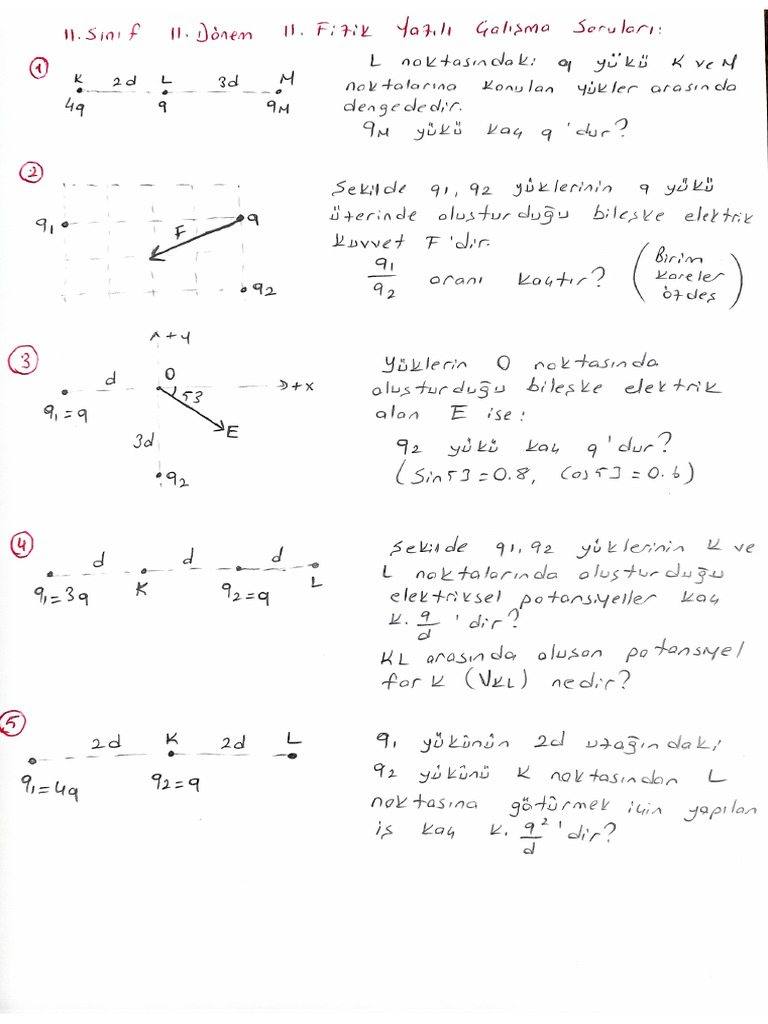 11. Sınıf 11. Dönem 11. Fizik Yazılı Çalışma Soruları:
1
K 2d L 3d M
4q q qM
L noktasındaki q yükü K ve M
noktalarına konulan yükler arasında
dengededir.
qM yükü kaç q 'dur?
2
q1 F q
q2
Şekilde q1, q2 yüklerinin q yükü
üzerinde oluşturduğu bileşke elektrik
kuvvet F'dir.
q1/q2 oranı kaçtır? (Birim kareler özdeş)
3
+y
d O 53 +x
q1=q
E
3d
q2
Yüklerin O noktasında
oluşturduğu bileşke elektrik
alan E ise:
q2 yükü kaç q'dur?
(Sin53=0.8, Cos53=0.6)
4
d d d
q1=3q K q2=q L
Şekilde q1,q2 yüklerinin K ve
L noktalarında oluşturduğu
elektriksel potansiyeller kaç
k.q/d 'dir?
KL arasında oluşan potansiyel
fark (VKL) nedir?
5
2d K 2d L
q1=4q q2=q
q1 yükünün 2d uzağındaki
q2 yükünü K noktasından L
noktasına götürmek için yapılan
iş kaç k.q²/d 'dir?